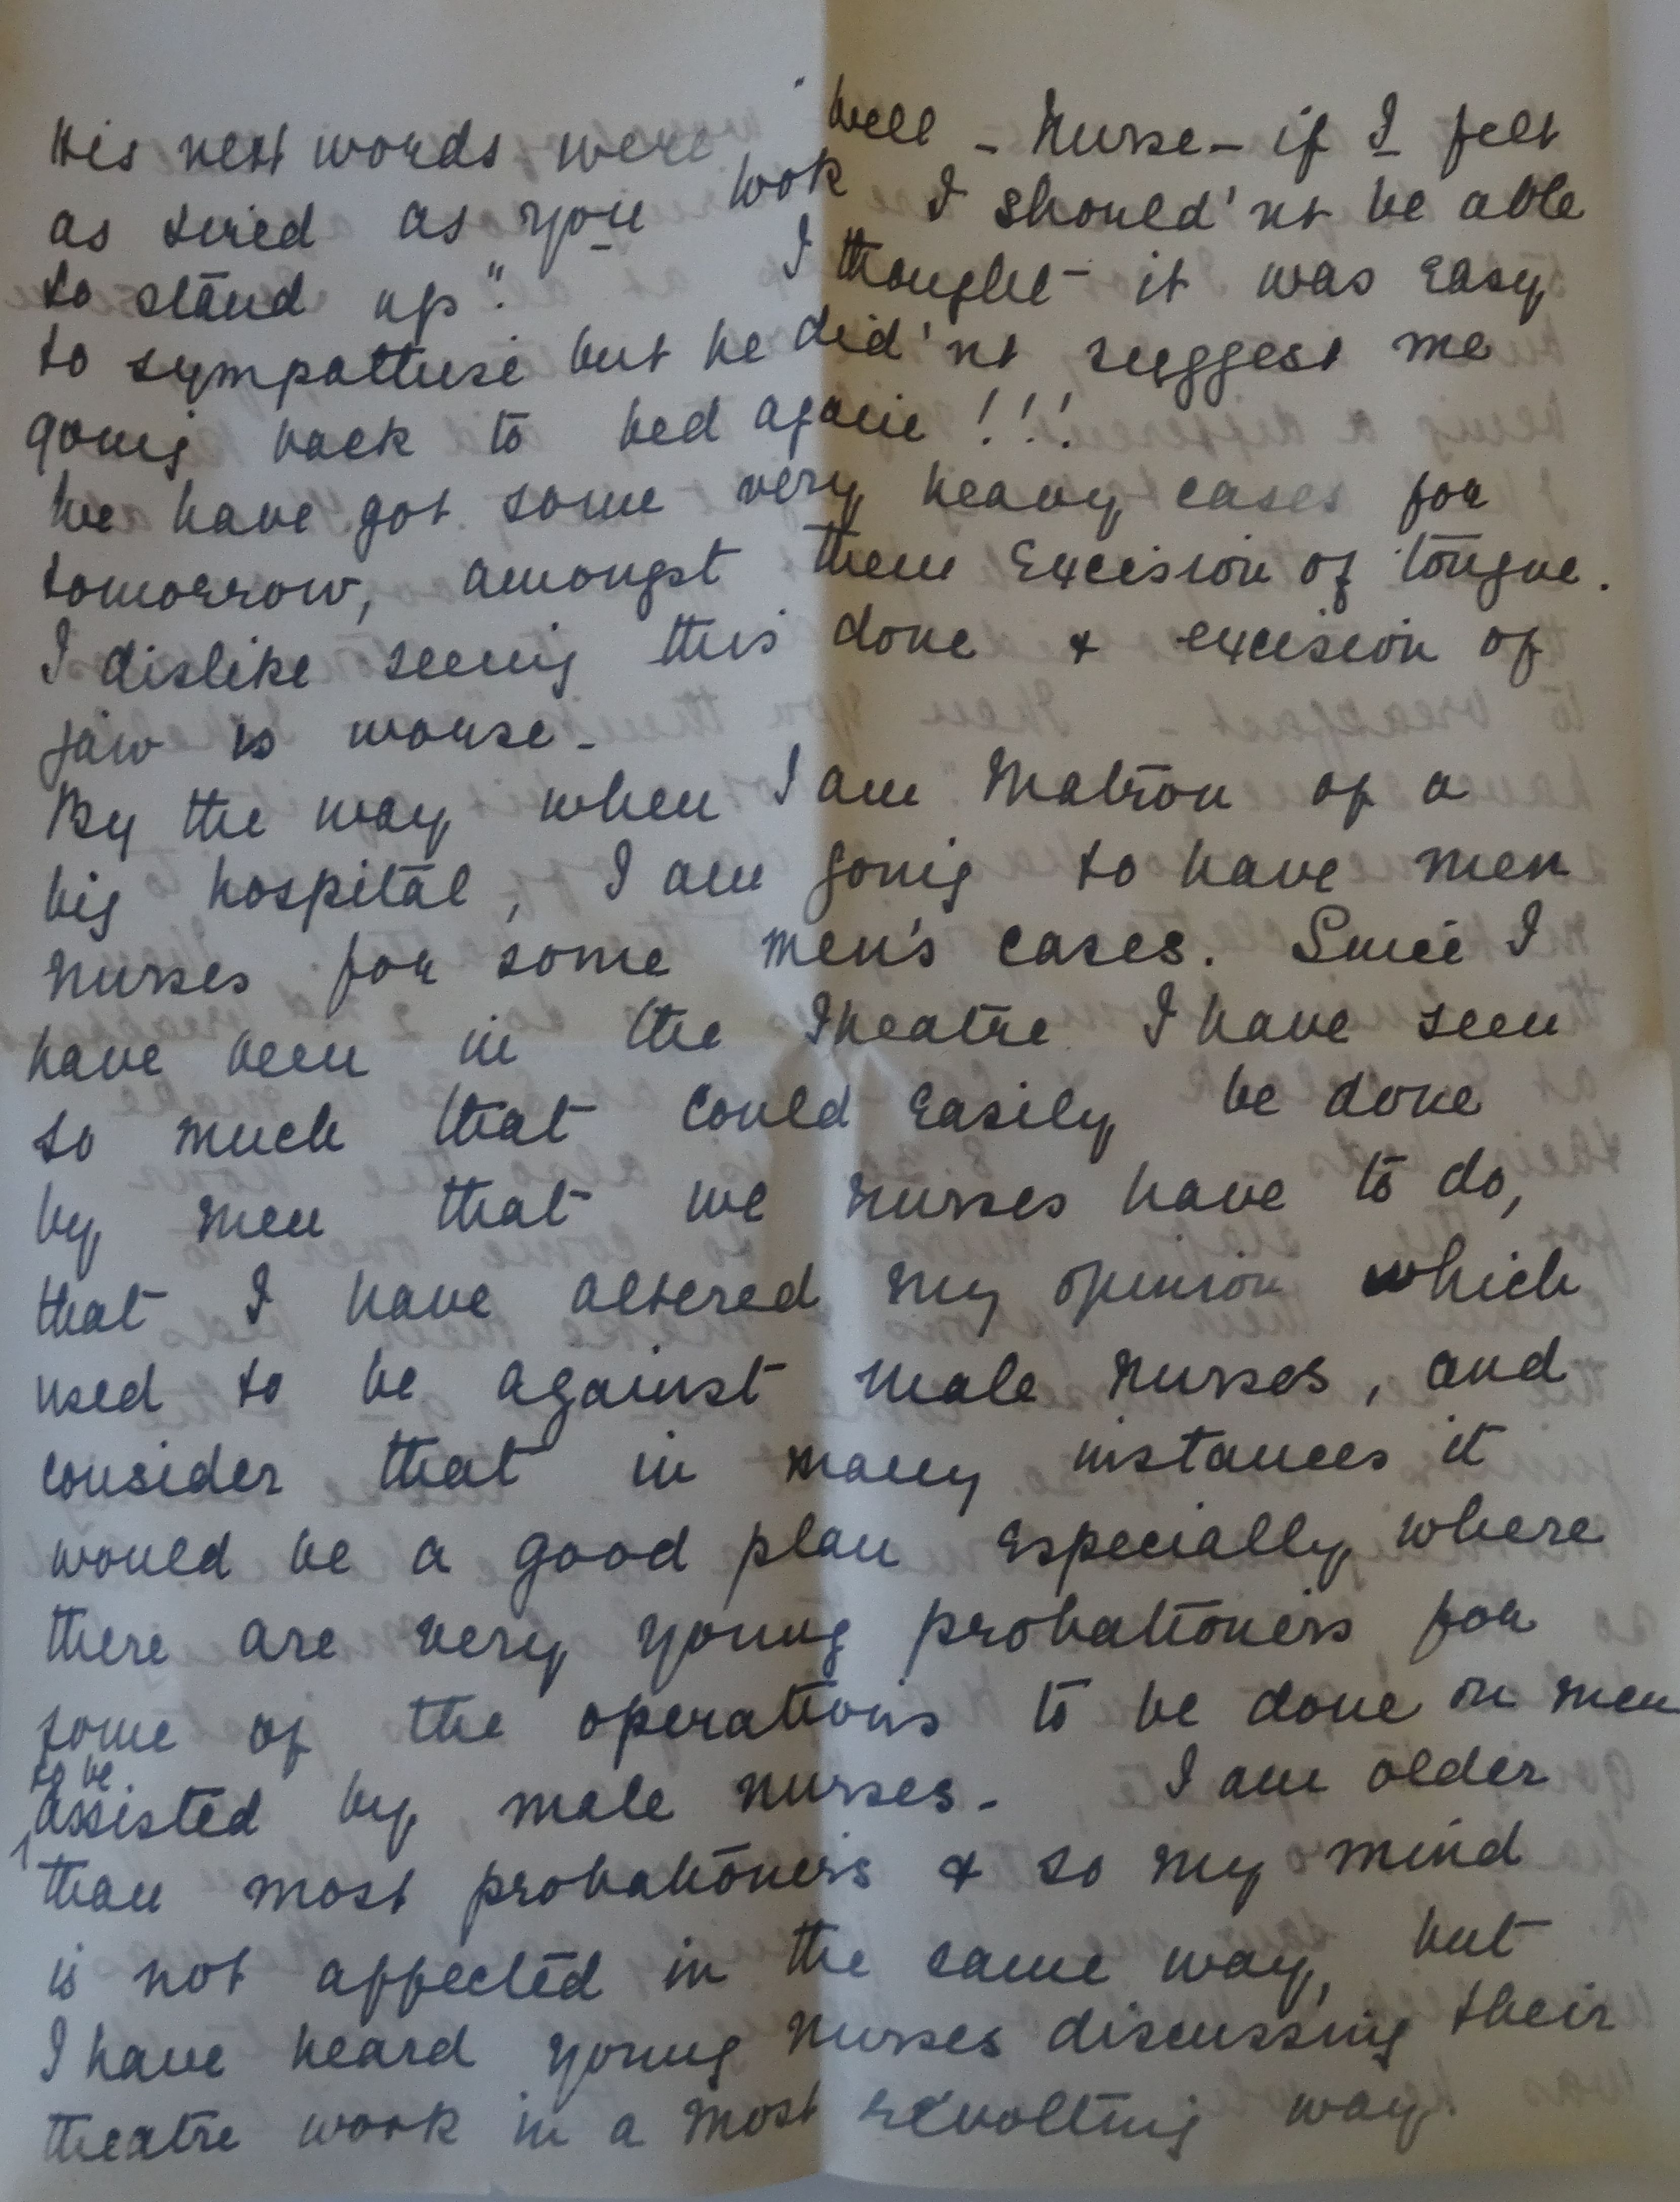 His next words were "Well - Nurse - if I felt
as tired as you look I should'nt be able
to stand up". I thought it was easy
to sympathise but he did'nt suggest me
going back to bed again!!!
We have got some very heavy cases for
tomorrow, amongst them Excision of tongue.
I dislike seeing this done & excision of
jaw is worse -
By the way when I am Matron of a
big hospital, I am going to have men
nurses for some men's cases. Since I
have been in the Theatre I have seen
so much that could easily be done
by men that we nurses have to do,
that I have altered my opinion which
used to be against male nurses, and
consider that in many instances it
would be a good plan especially where
there are very young probationers for
some of the operations to be done on men
to be
assisted by male nurses - I am older
than most probationers & so my mind
is not affected in the same way, but
I have heard young nurses discussing their
theatre work in a most revolting way.